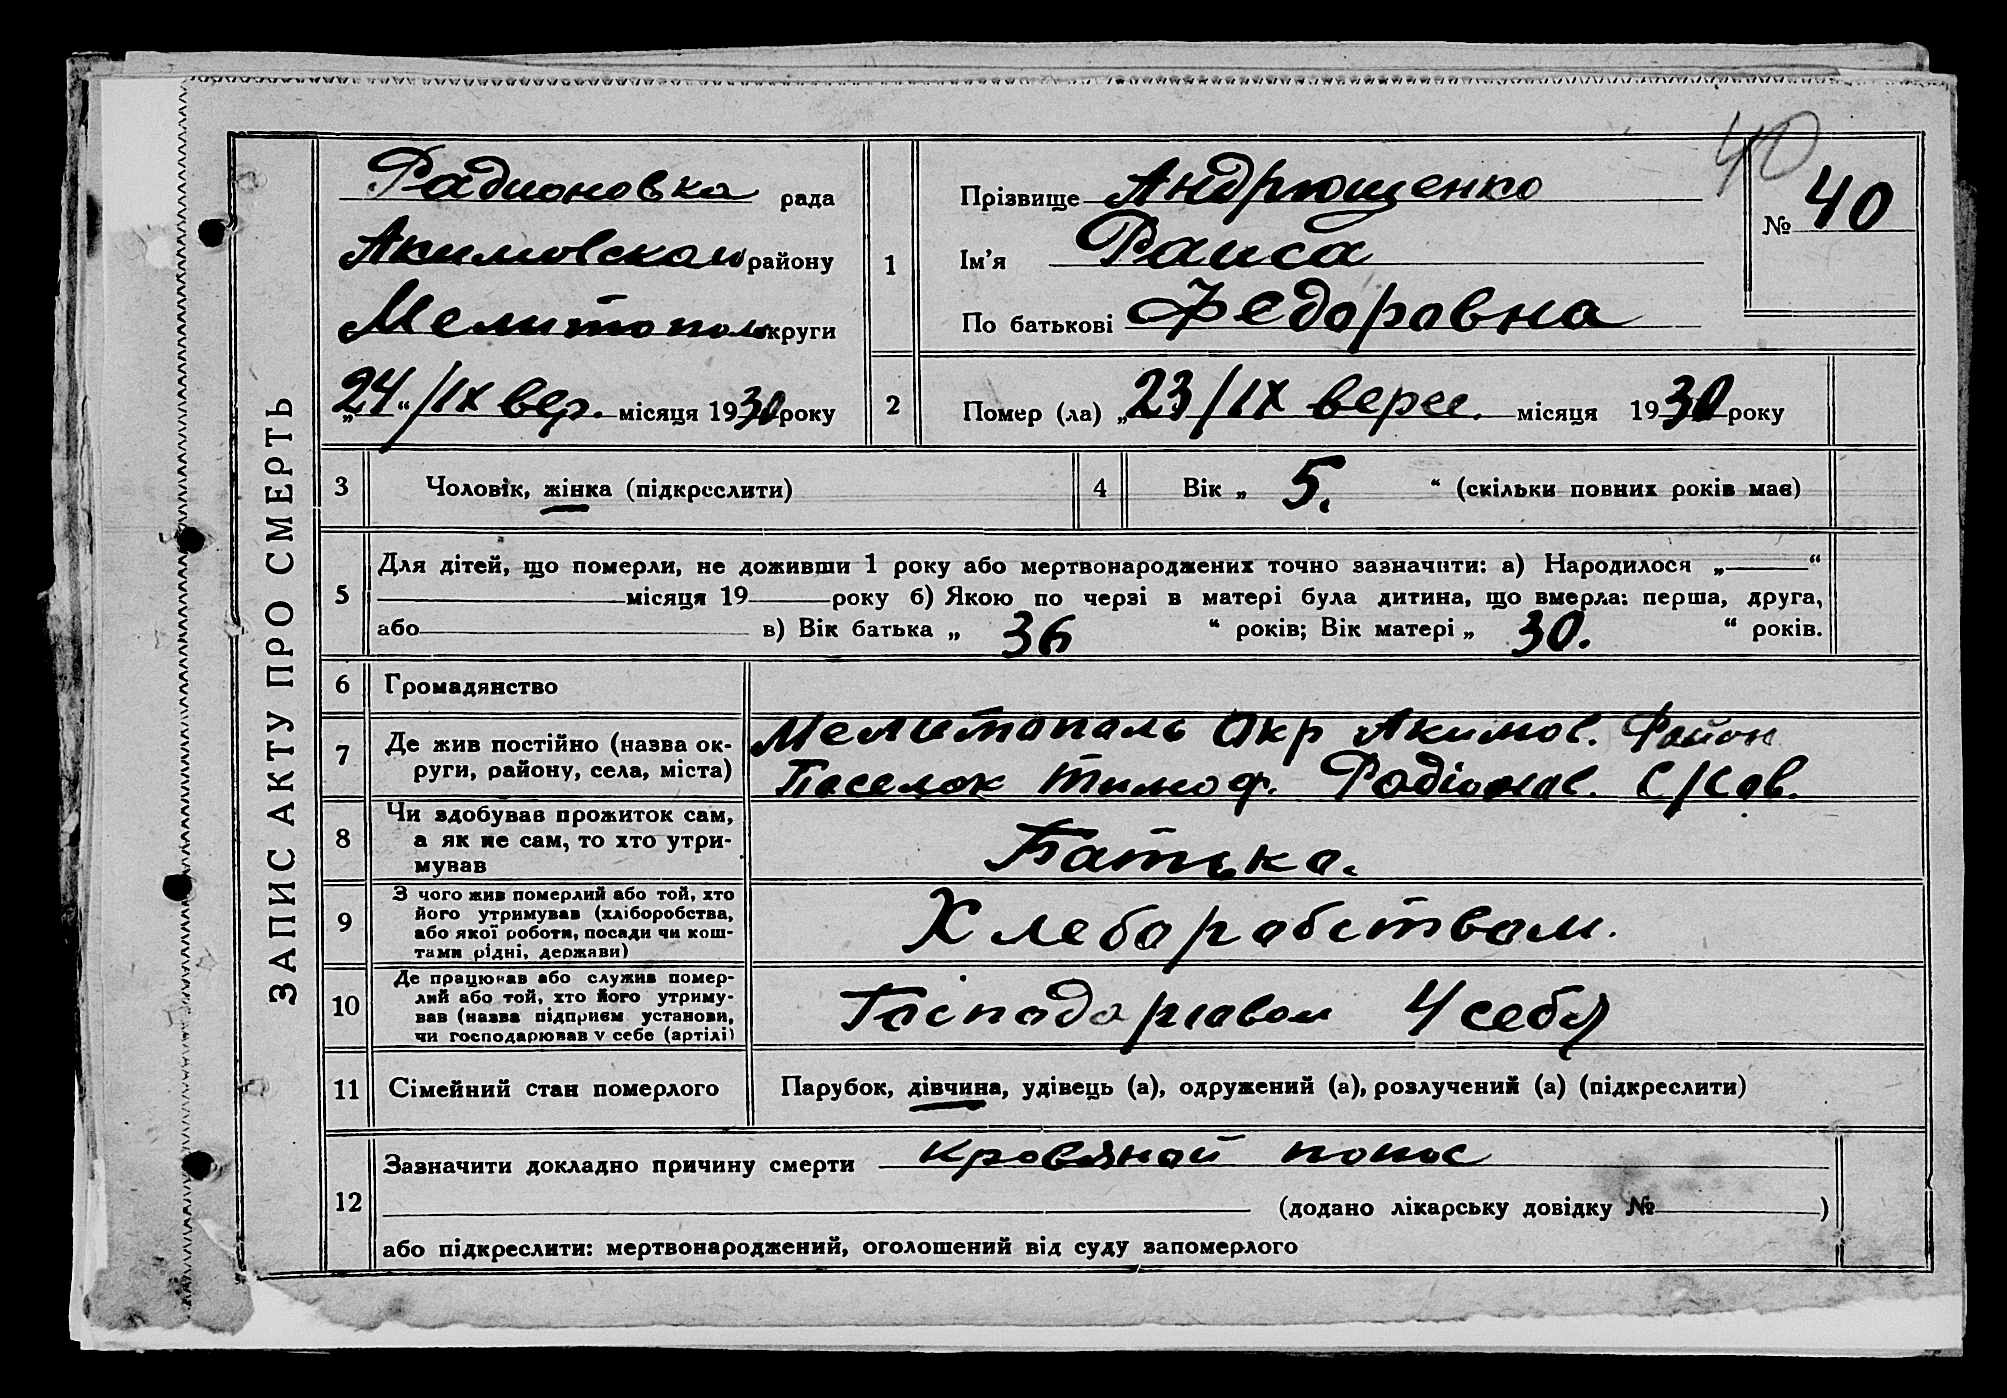 40
ЗАПИС АКТУ ПРО СМЕРТЬ
Радионовка рада
Акимовскои району
Мелитополь округи
„24“/IX вер. місяця 1930 року
1
Прізвище Андрющенко
Ім'я Раиса
По батькові Федоровна
№ 40
2
Помер (ла) „23/IX верес. місяця 1930 року
3 Чоловік, жінка (підкреслити)
4 Вік „ 5. “ (скільки повних років має)
5
Для дітей, що померли, не доживши 1 року або мертвонароджених точно зазначити: а) Народилося „ “
місяця 19 року б) Якою по черзі в матері була дитина, що вмерла: перша, друга,
або в) Вік батька „ 36 “ років; Вік матері „ 30. “ років.
6 Громадянство
7
Де жив постійно (назва ок-
руги, району, села, міста)
Мелитополь Окр Акимов. Район
Поселок Тимоф. Радіонов. С/Сов.
8
Чи здобував прожиток сам,
а як не сам, то хто утри-
мував
Батька.
9
З чого жив померлий або той, хто
його утримував (хліборобства,
або якої роботи, посади чи кош-
тами рідні, держави)
Хлеборобством.
10
Де працював або служив помер-
лий або той, хто його утриму-
вав (назва підприєм. установи,
чи господарював у себе (артілі)
Господарювал У себя
11 Сімейний стан померлого
Парубок, дівчина, удівець (а), одружений (а), розлучений (а) (підкреслити)
12
Зазначити докладно причину смерти кровяной понос
(додано лікарську довідку № )
або підкреслити: мертвонароджений, оголошений від суду запомерлого